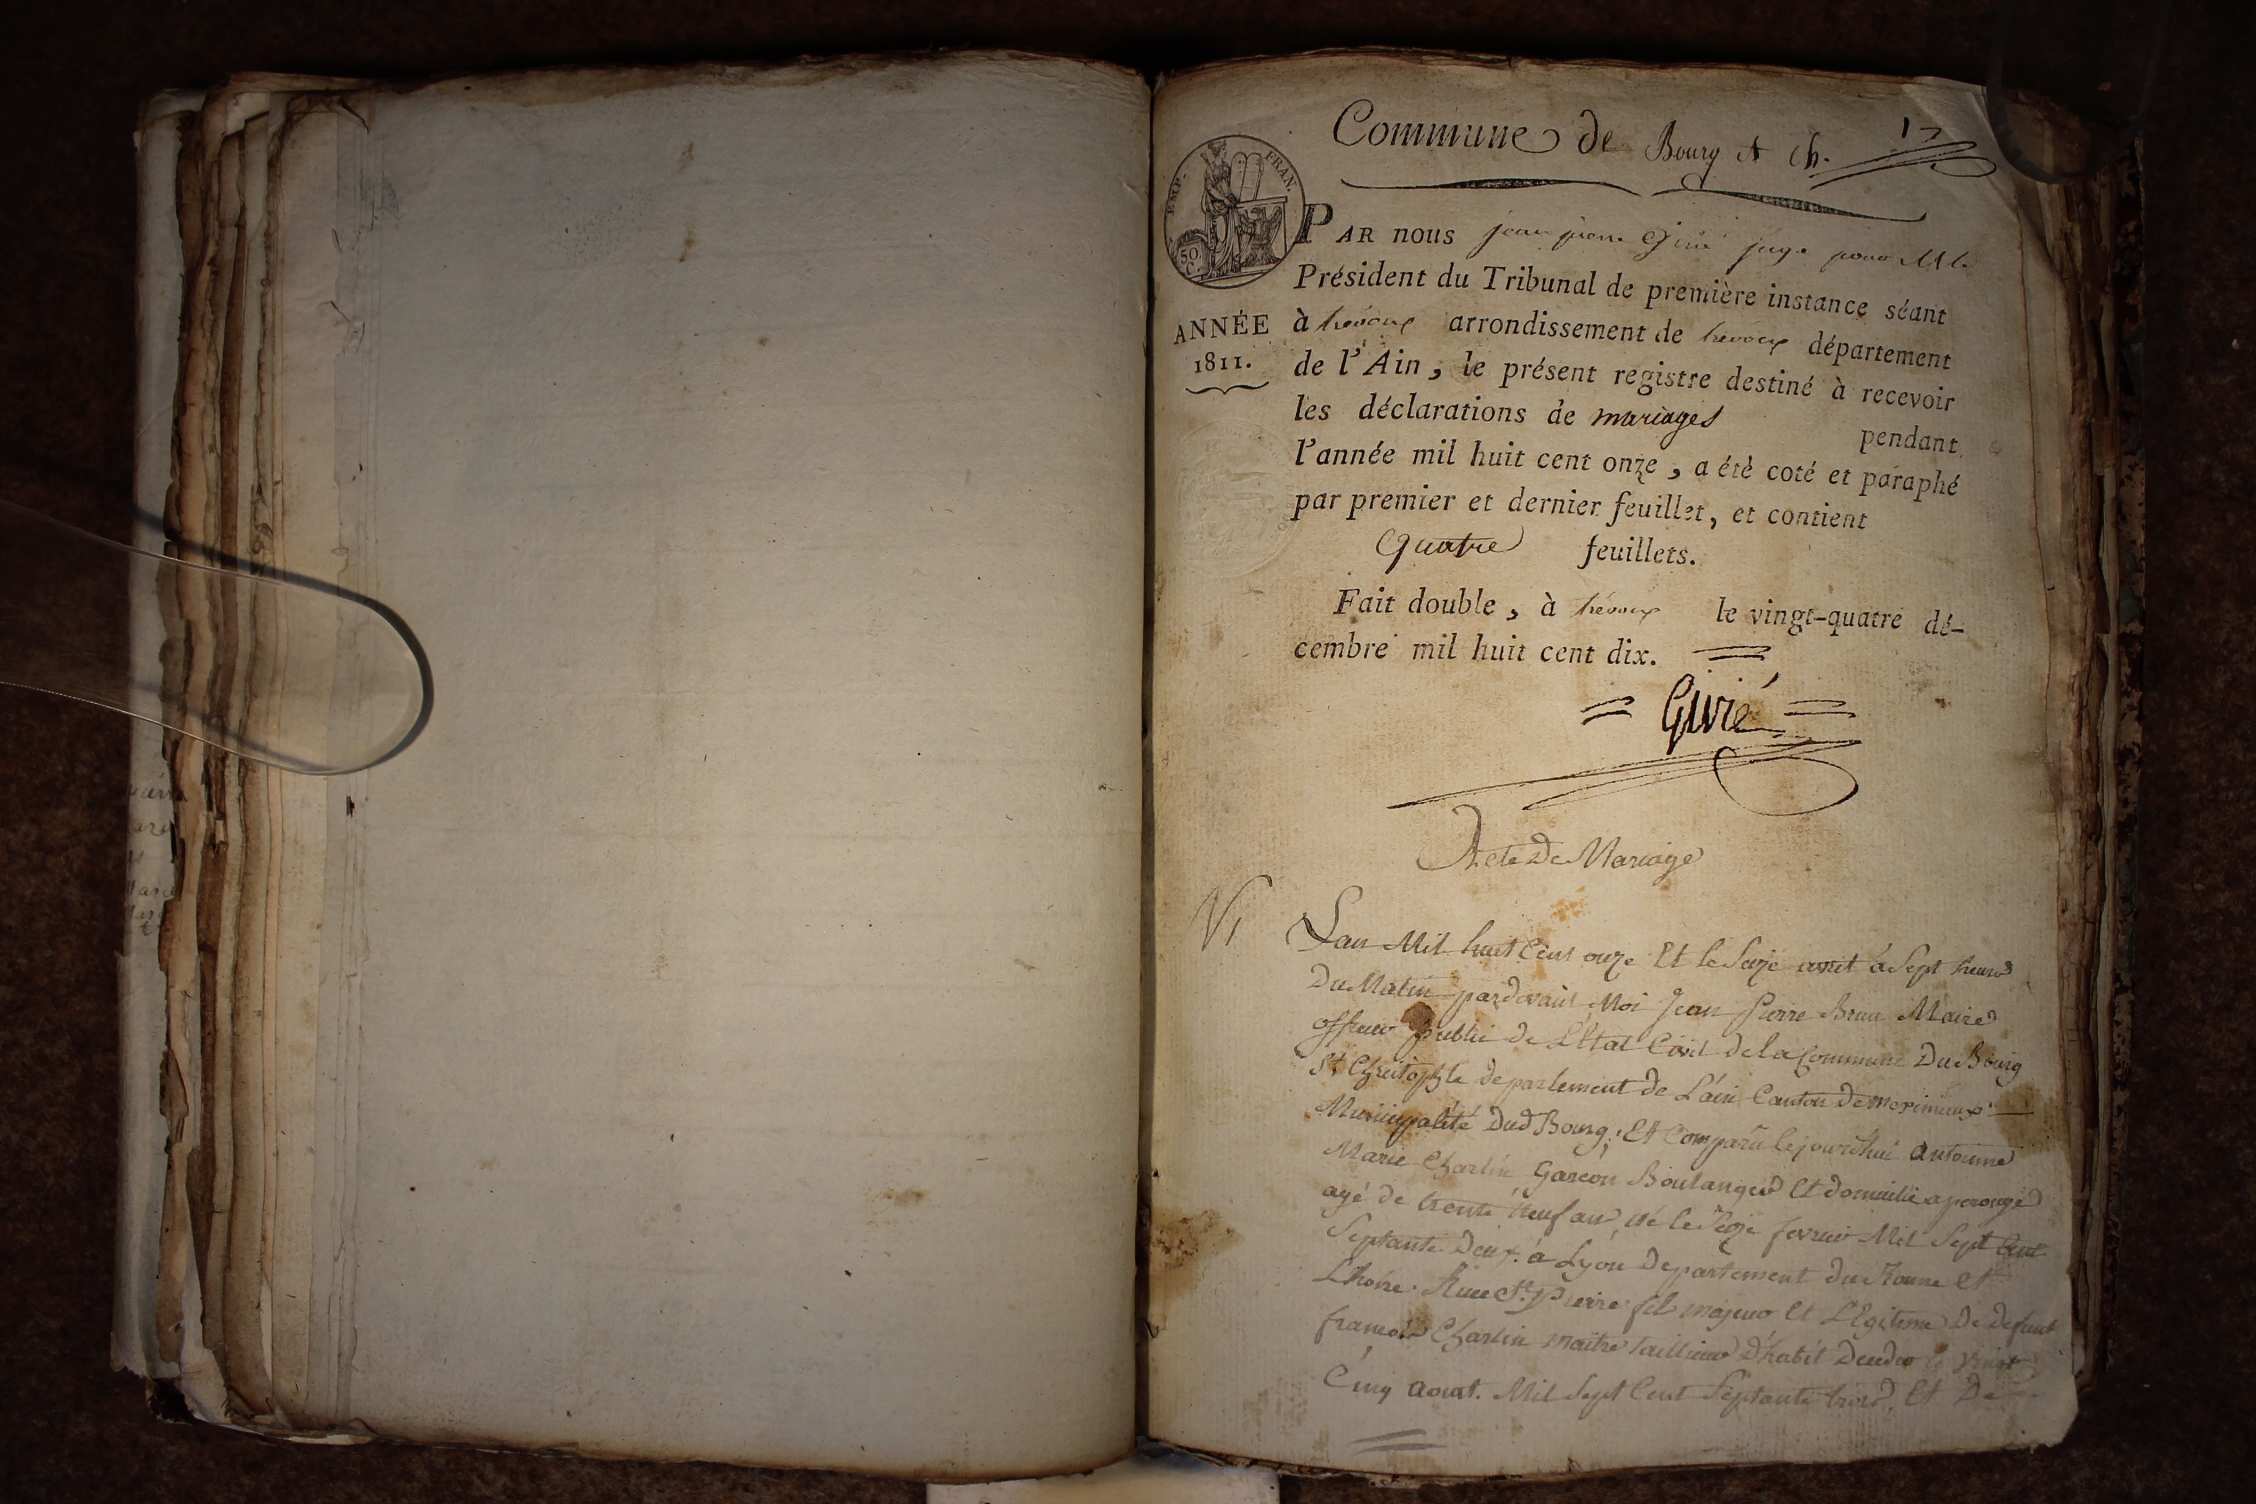 Commune de Bourg St Ch.
17
EMP. FRAN.
50
C.
PAR nous jean pierre Givié juge pour M le
Président du Tribunal de première instance séant
ANNÉE
1811.
à trévoux arrondissement de trévoux département
de l'Ain, le présent registre destiné à recevoir
les déclarations de mariages pendant
l'année mil huit cent onze, a été coté et paraphé
par premier et dernier feuillet, et contient
Quatre feuillets.
Fait double, à trévoux le vingt-quatre dé-
cembre mil huit cent dix.
Givié
Acte De Mariage
Lan Mil huit Cent onze Et le Seize avril à Sept heures
Du Matin pardevant Moi Jean Pierre Brun Maire
officier public de L'Etat Civil de la Commune Du Bourg
St Christophle departement de L'ain Canton de meximieux
Municipalité Dud Bourg, Et Comparu cejourdhui antoinne
Marie Charlin Garcon Boulanger Et domicilié a perouge
agé de trente neuf an né le Seize fevrier Mil Sept Cent
Septante Deux à Lyon Departement du Ronne Et
Lhoire Rue St Pierre fils majeur Et LEgitime De defunt
francois Charlin maitre taillieur D'habit le vingt
Cinq aout Mil Sept Cent Septante trois Et De